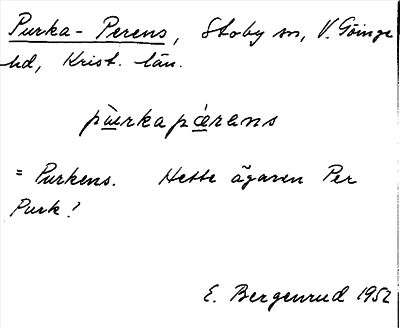 Purka-Perens, Stoby sn, V. Göinge
hd, Krist. län.
pùrkapǽrens
= Purkens. Hette ägaren Per
Purk?
E. Bergenrud 1952